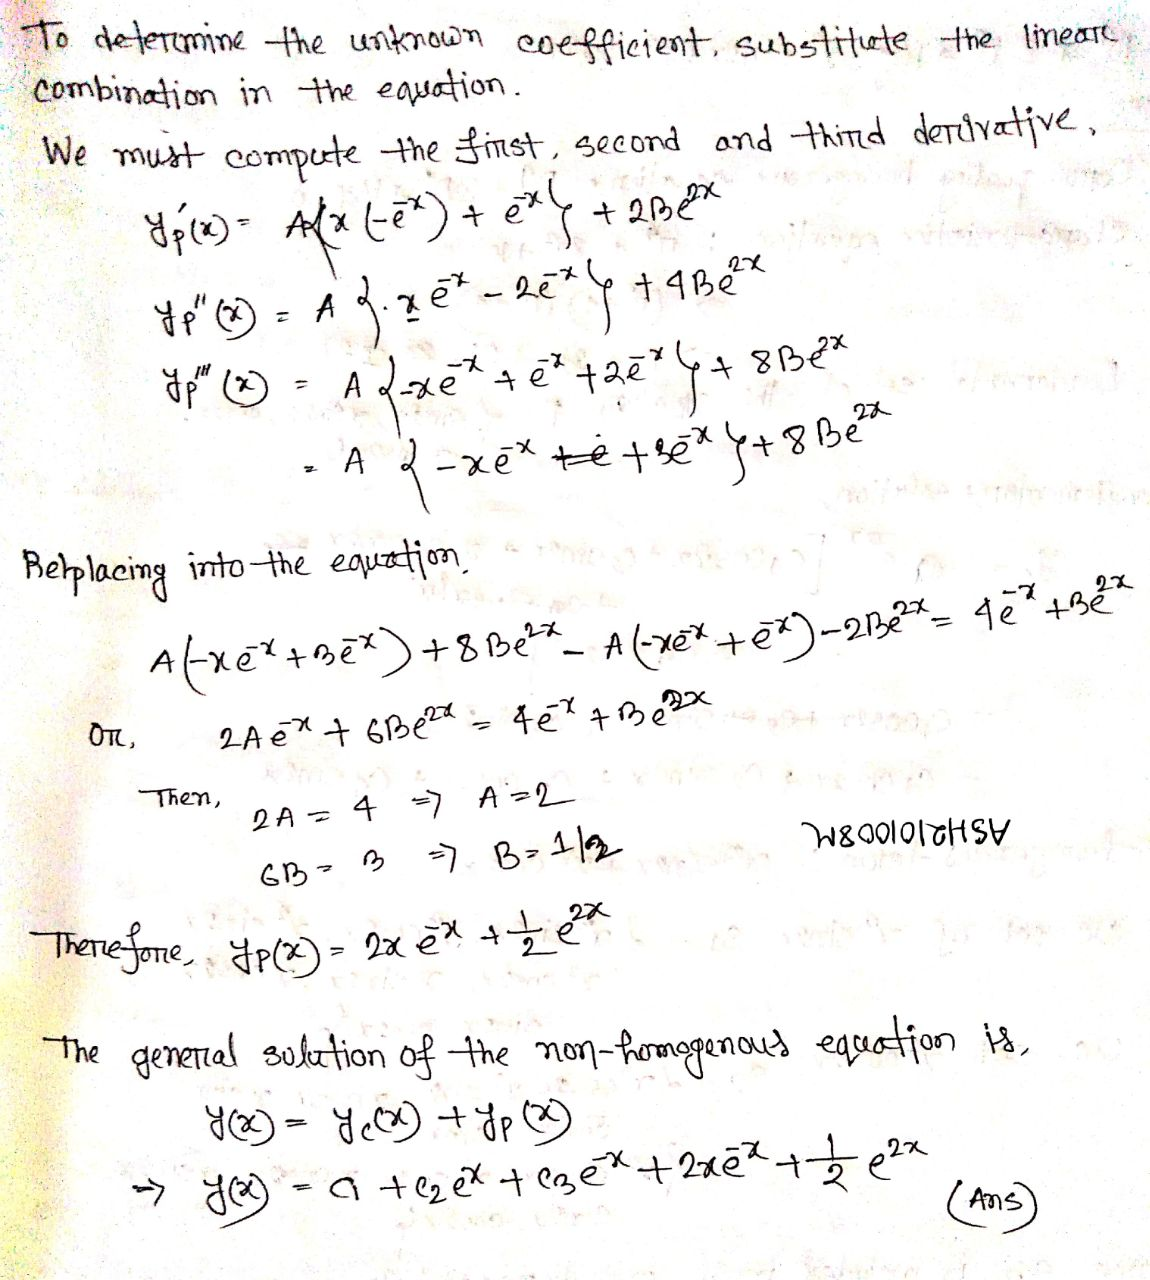 To determine the unknown coefficient, substitute the linear
combination in the equation.
We must compute the first, second and third derivative,
yₚ'(x) = A{x(-e⁻ˣ) + e⁻ˣ} + 2Be²ˣ
yₚ''(x) = A{xe⁻ˣ - 2e⁻ˣ} + 4Be²ˣ
yₚ'''(x) = A{-xe⁻ˣ + e⁻ˣ + 2e⁻ˣ} + 8Be²ˣ
= A{-xe⁻ˣ + 3e⁻ˣ} + 8Be²ˣ
Relplacing into the equation,
A(-xe⁻ˣ + 3e⁻ˣ) + 8Be²ˣ - A(-xe⁻ˣ + e⁻ˣ) - 2Be²ˣ = 4e⁻ˣ + 3e²ˣ
Or, 2Ae⁻ˣ + 6Be²ˣ = 4e⁻ˣ + 3e²ˣ
Then, 2A = 4 => A = 2
6B = 3 => B = 1/2
ASH2101008M
Therefore, yₚ(x) = 2xe⁻ˣ + 1/2 e²ˣ
The general solution of the non-homogenous equation is,
y(x) = y_c(x) + yₚ(x)
=> y(x) = c₁ + c₂eˣ + c₃e⁻ˣ + 2xe⁻ˣ + 1/2 e²ˣ (Ans)